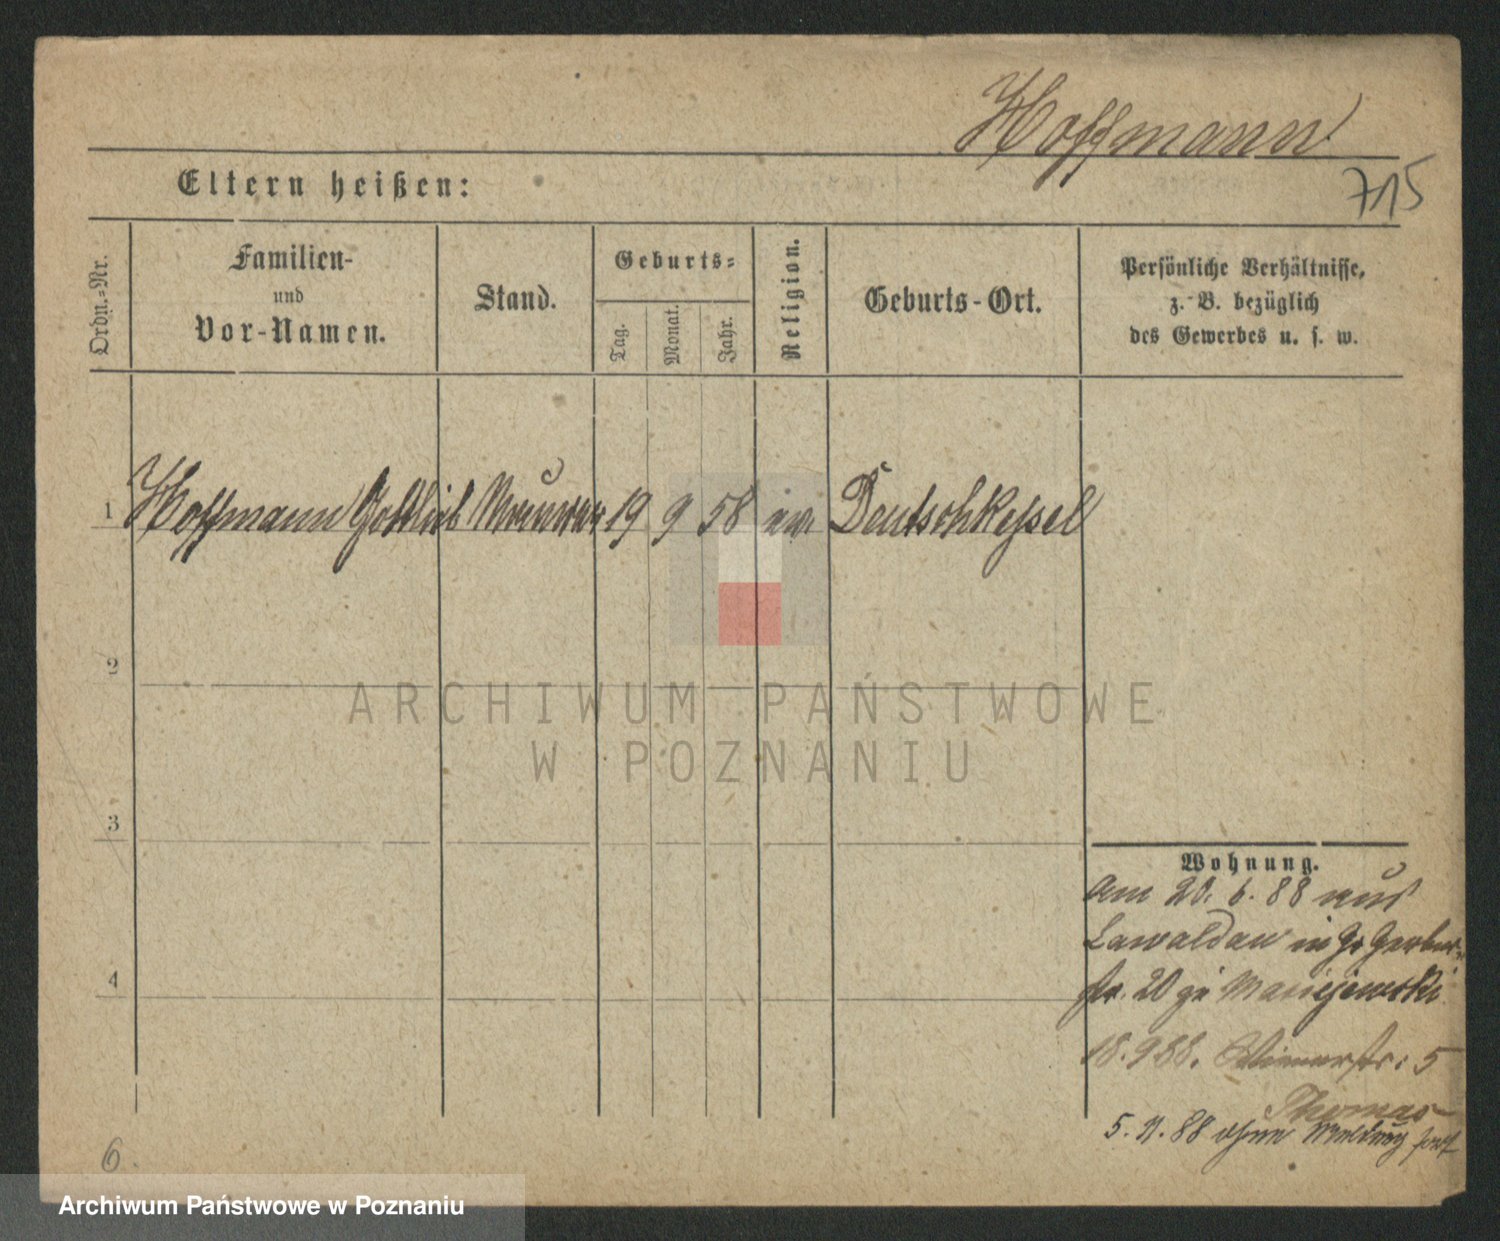 Hoffmann
715
Eltern heißen:
Ordn.-Nr.
Familien-
und
Vor-Namen.
Stand.
Geburts-
Tag.
Monat.
Jahr.
Religion.
Geburts-Ort.
Persönliche Verhältnisse,
z. B. bezüglich
des Gewerbes u. s. w.
1 Hoffmann Gottlieb Maurer 19 9 58 ev. Deutschkessel
2
ARCHIWUM PAŃSTWOWE
W POZNANIU
3
4
Wohnung.
Am 20. 6. 88 aus
Lawaldau in Gr Gerber-
str. 20 zu Maciejewski
18. 9 88. Wienerstr: 5
Thomas
5. 11. 88 ohne Meldung fort
6.
Archiwum Państwowe w Poznaniu